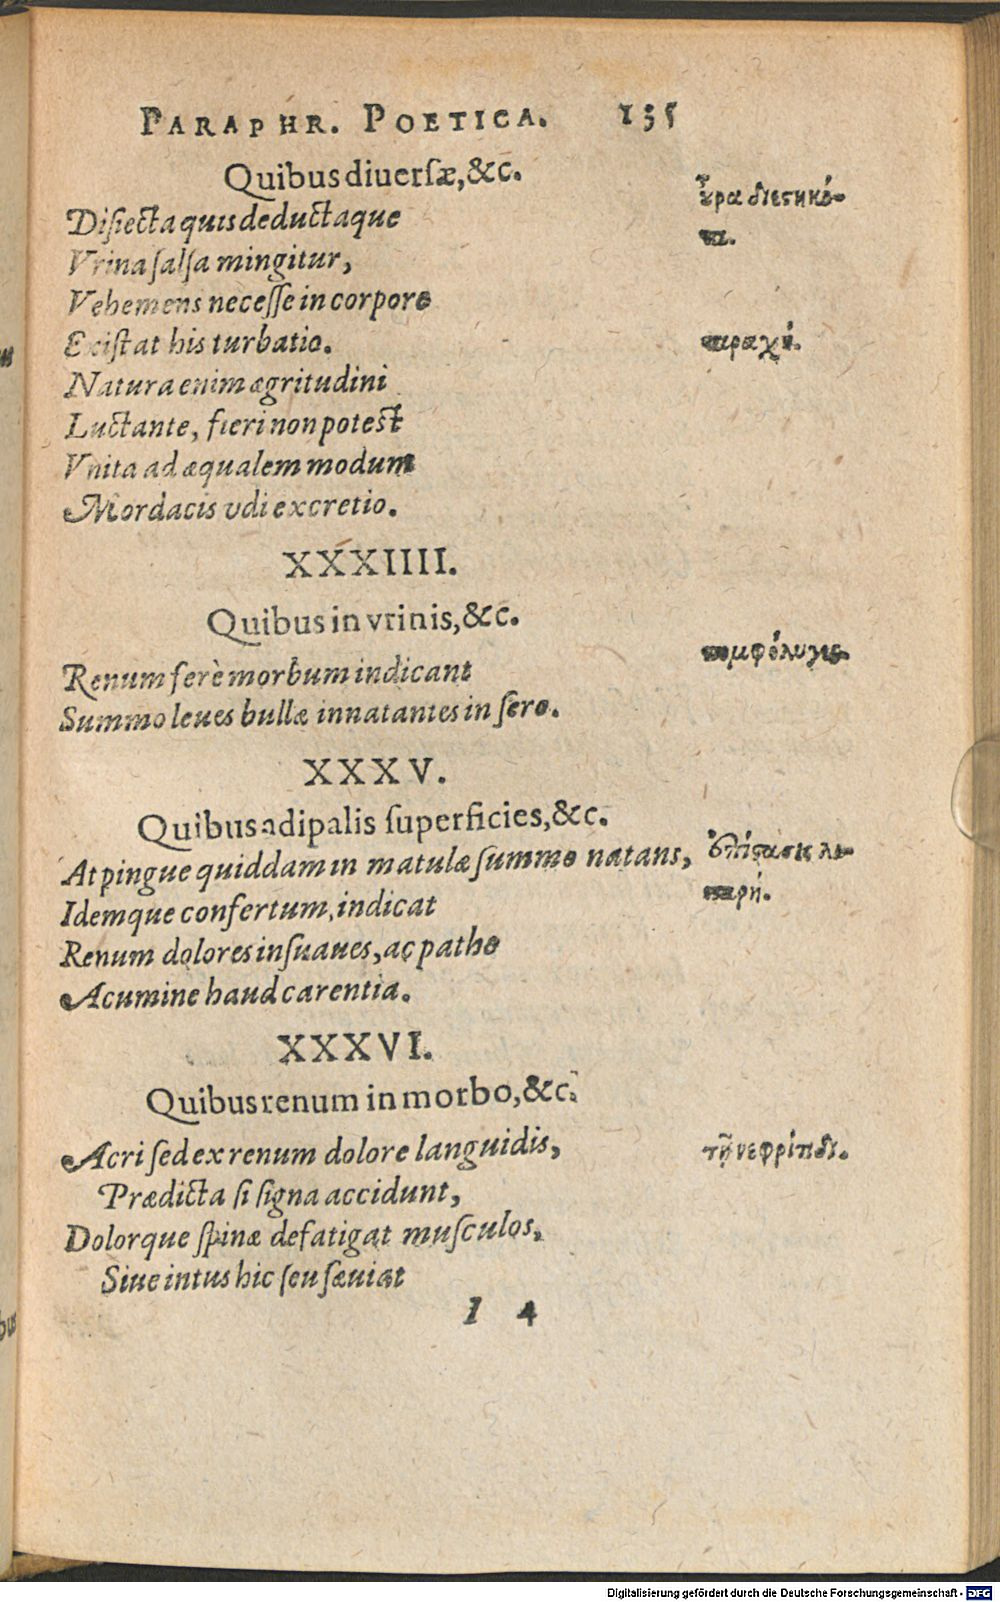 PARAPHR. POETICA. 135
Quibus diuersæ, &c.
Disiecta quis deductaque
Vrina salsa mingitur,
Vehemens necesse in corpore
Existat his turbatio.
Natura enim ægritudini
Luctante, fieri non potest
Vnita ad æqualem modum
Mordacis vdi excretio.
XXXIIII.
Quibus in vrinis, &c.
Renum ferè morbum indicant
Summo leues bullæ innatantes in sero.
XXXV.
Quibus adipalis superficies, &c.
At pingue quiddam in matulæ summo natans,
Idemque confertum, indicat
Renum dolores insuaues, ac pathe
Acumine haud carentia.
XXXVI.
Quibus renum in morbo, &c.
Acri sed ex renum dolore languidis,
Prædicta si signa accidunt,
Dolorque spinæ defatigat musculos,
Siue intus hic seu sæuiat
I 4
ταραχή.
πομφόλυγες
ὑπόστασις λι-
παρή.
Digitalisierung gefördert durch die Deutsche Forschungsgemeinschaft - DFG